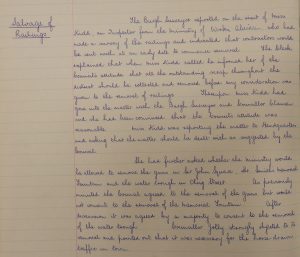 Salvage of
Railings
The Burgh Surveyor reported on the visit of Miss
Kidd, an Inspector from the Ministry of Works, Aberdeen, who had
made a survey of the railings and indicated that contractors would
be sent north at an early date to commence removal. The Clerk
explained that when Miss Kidd called he informed her of the
Council's attitude that all the outstanding scrap throughout the
district should be collected and removed before any consideration was
given to the removal of railings. Thereupon Miss Kidd had
gone into the matter with the Burgh Surveyor and Councillor
and she had been convinced that the Council's attitude was
reasonable. Miss Kidd was reporting the matter to Headquarters
and asking that the matter should be dealt with as suggested by the
Council.
She had further asked whether the Ministry would
be allowed to remove the guns in Sir John Square, the
Fountain and the water trough in Street. As previously
minuted the Council agreed to the removal of the guns but would
not consent to the removal of the Memorial Fountain. After
discussion it was agreed by a majority to consent to the removal
of the water trough. Councillor Jolly strongly objected to its
removal and pointed out that it was necessary for the horse drawn
traffic in town.